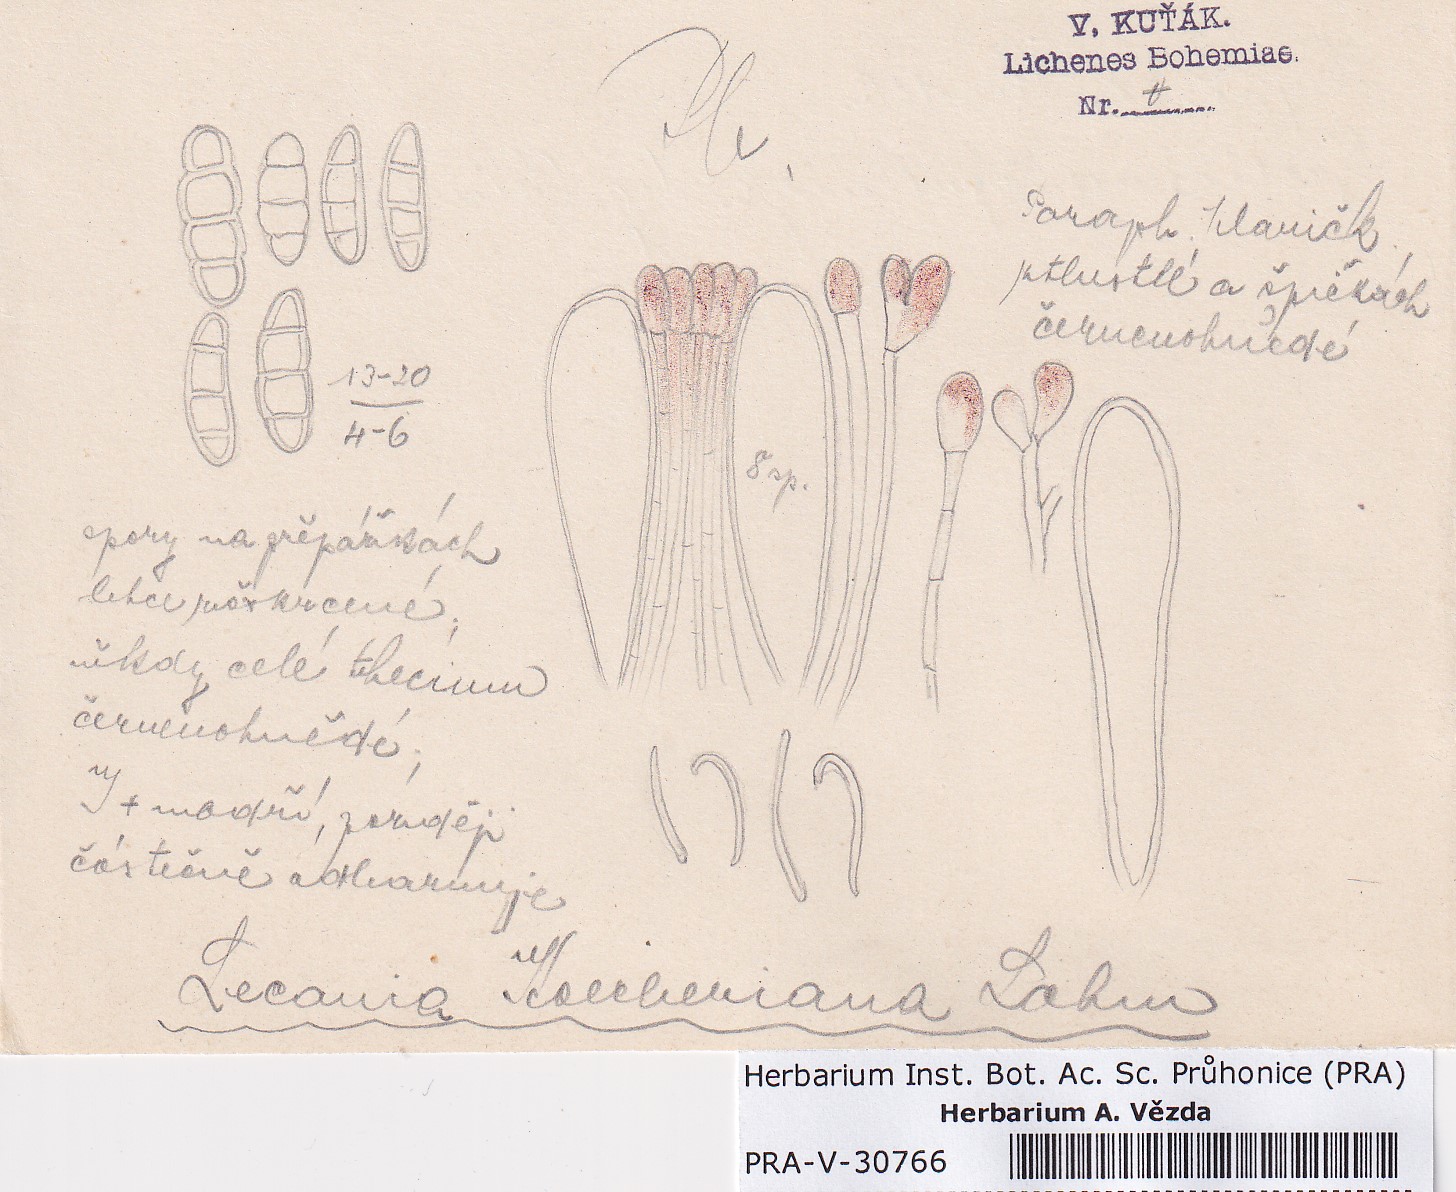 V. KUŤÁK.
Lichenes Bohemiae.
Nr.
Paraph. hlavičk.
ztlustlé a špičkách
červenohnědé
13-20
4-6
8 sp.
spory na
lehce
někdy celé thecium
červenohnědé;
J + modří, později
částečně odbarvuje
Lecania Koerberiana Lahm
Herbarium Inst. Bot. Ac. Sc. Průhonice (PRA)
Herbarium A. Vězda
PRA-V-30766